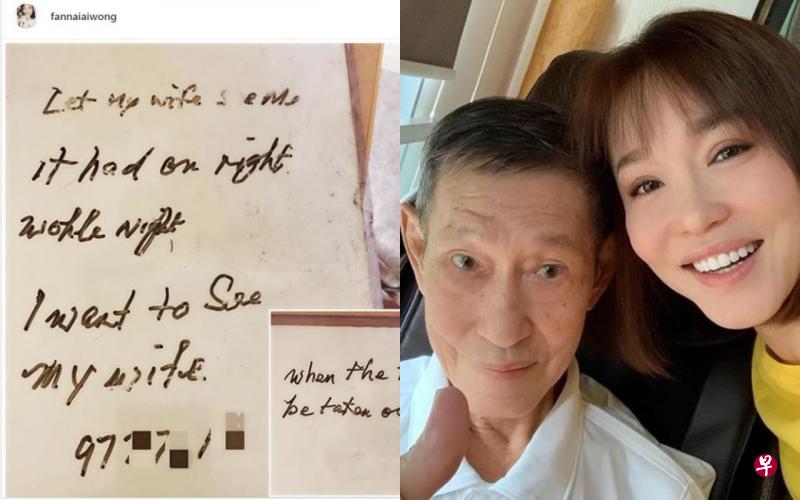 fannaiaiwong
Let my wife see me
it had on right
wohle night
I want to See
my wife.
when the
be taken
早